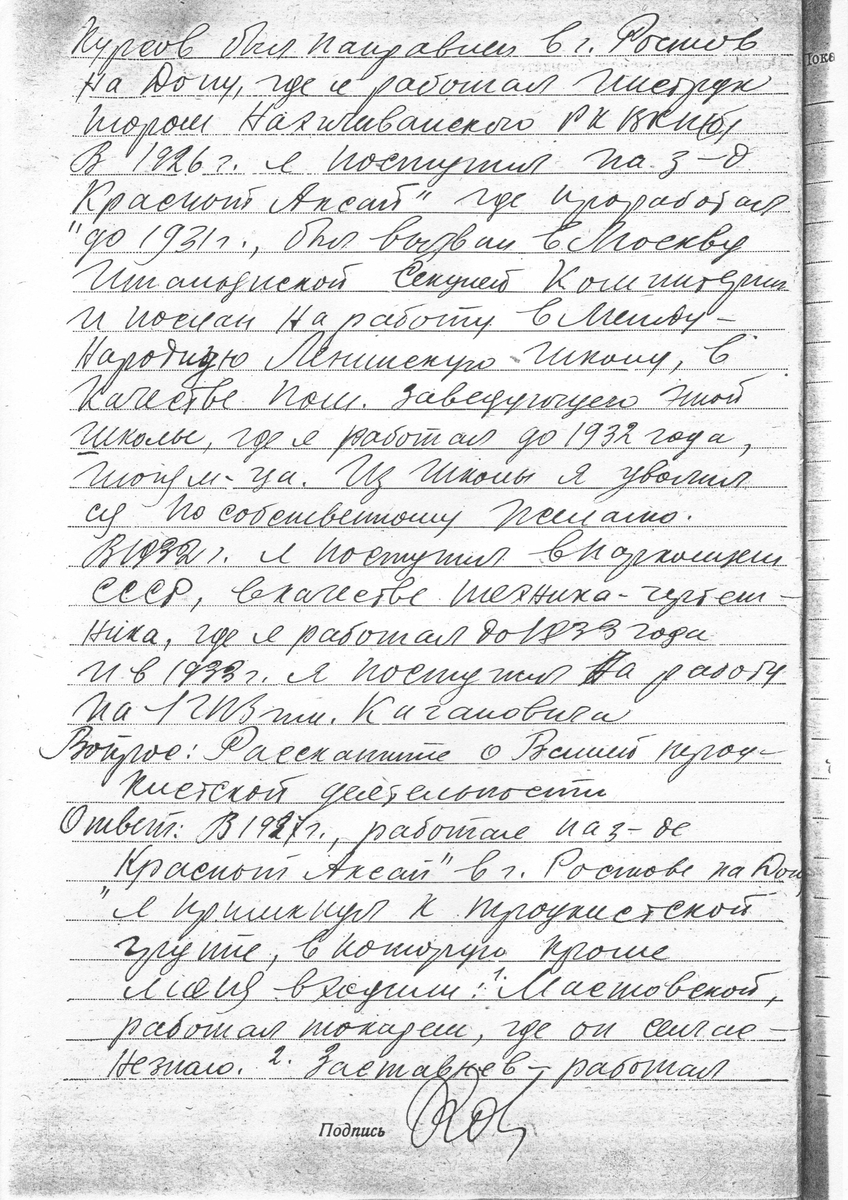 Курсов был направлен в г. Ростов
на Дону, где я работал инструк
тором Нахичиванского РК ВКП(б)
В 1926 г. я поступил на з-д
Красный Аксай" где проработал
"до 1931 г., был вызван в Москву
Итальянской Секцией Коминтерна
и послан на работу в Между-
народную Ленинскую школу, в
качестве пом. заведующего этой
школы, где я работал до 1932 года,
м-ца. Из школы я уволил
ся по собственному желанию.
В 1932 г. я поступил в
СССР, в качестве техника-
ника, где я работал до 1933 года
и в 1933 г. я поступил на работу
на 1 ГПЗ им. Кагановича
Вопрос: Расскажите о Вашей троц-
кистской деятельности
Ответ: В 1927 г., работая на з-де
Красный Аксай" в г. Ростове на Дону
"я примкнул к троцкистской
группе, в которую кроме
меня входили: 1. Мастовской,
работал токарем, где он сейчас-
незнаю. 2. Заставнев - работал
Подпись